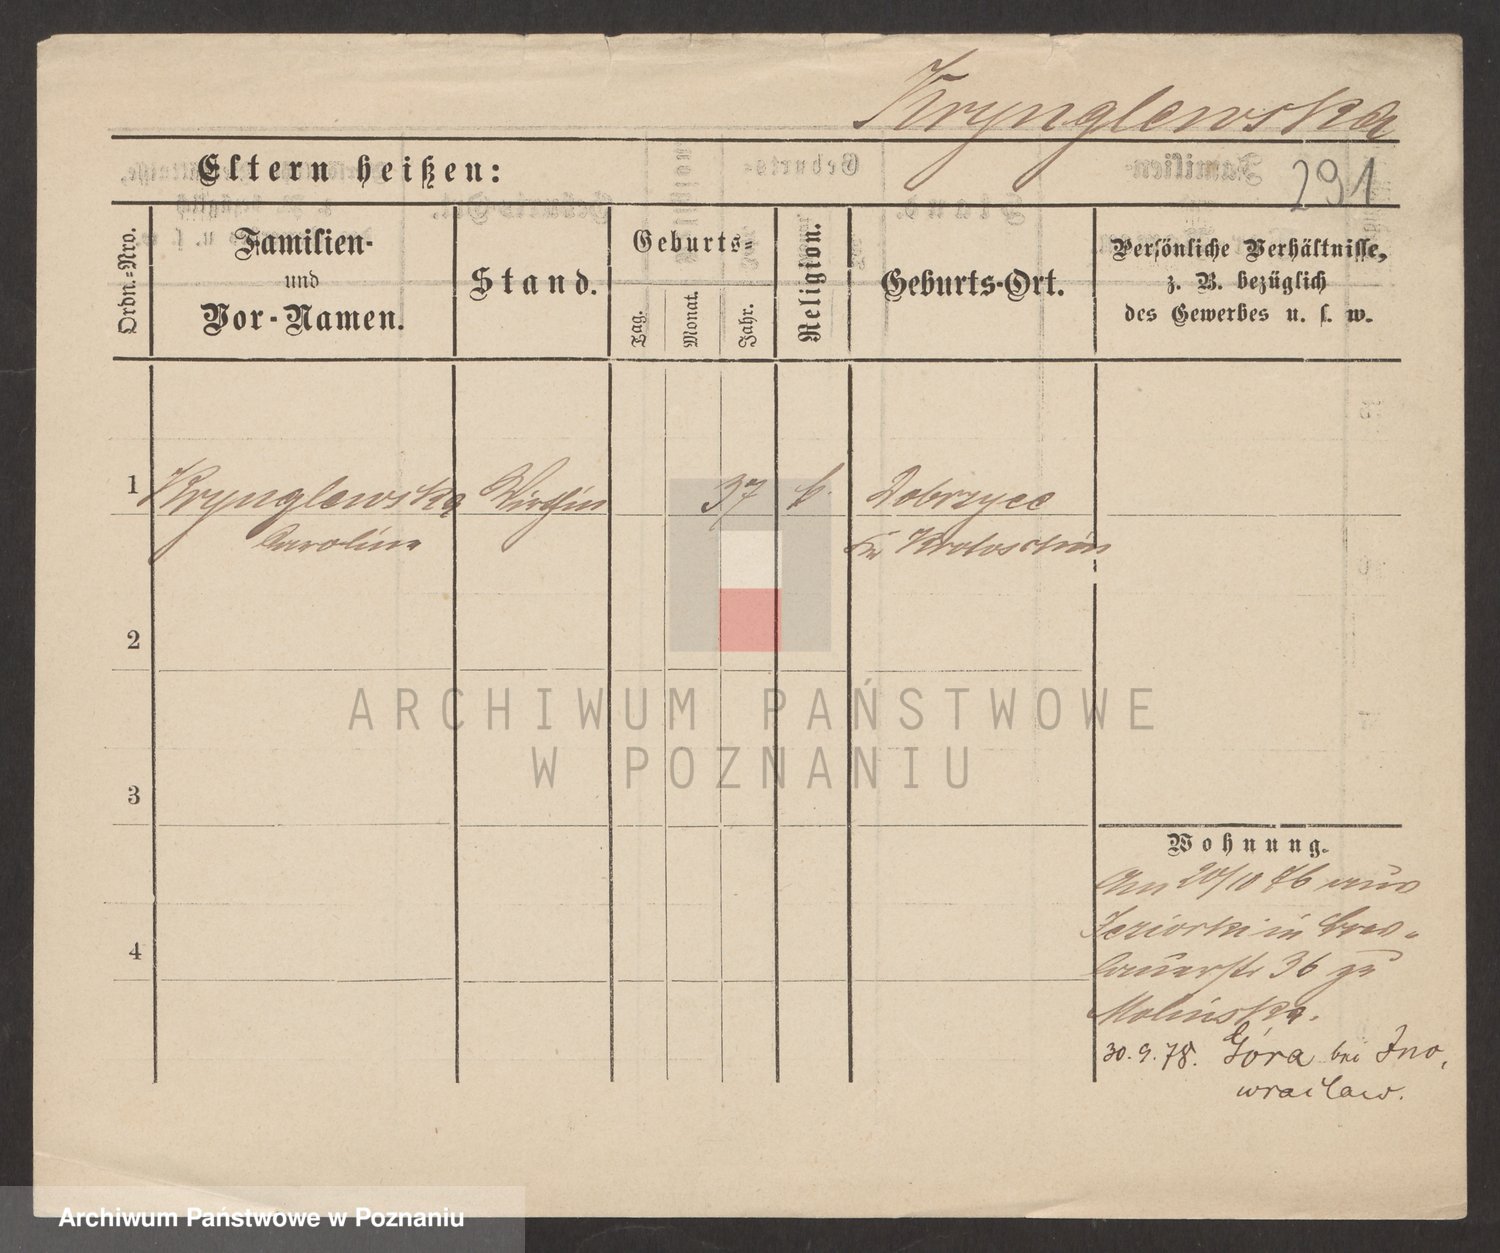 Krynglewska
Eltern heißen:
291
Ordn.-Nro.
Familien-
und
Vor-Namen.
Stand.
Geburts-
Tag.
Monat.
Jahr.
Religion.
Geburts-Ort.
Persönliche Verhältnisse,
z. B. bezüglich
des Gewerbes u. s. w.
1 Krynglewska Wirthin 37 k. Dobrzyce
Carolina Kr Krotoschin
2
3
4
Wohnung.
Am 20/10 76 aus
Jeziorki in Bres-
lauerstr 36 zu
Molinska.
30.9.78. Góra bei Ino,
wraclaw.
ARCHIWUM PAŃSTWOWE
W POZNANIU
Archiwum Państwowe w Poznaniu